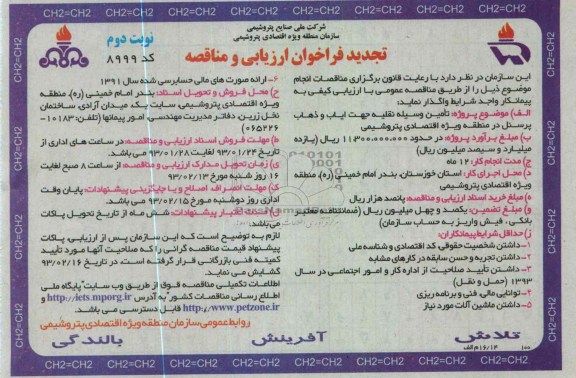 CH2=CH2 CH2=CH2 CH2=CH2 CH2=CH2 CH2=CH2 CH2=CH2 CH2=CH2
شرکت ملی صنایع پتروشیمی
سازمان منطقه ویژه اقتصادی پتروشیمی
نوبت دوم
کد ۸۹۹۹
تجدید فراخوان ارزیابی و مناقصه
این سازمان در نظر دارد با رعایت قانون برگزاری مناقصات انجام
موضوع ذیل را از طریق مناقصه عمومی با ارزیابی کیفی به
پیمانکار واجد شرایط واگذار نماید:
الف) موضوع پروژه: تأمین وسیله نقلیه جهت ایاب و ذهاب
پرسنل در منطقه ویژه اقتصادی پتروشیمی
ب) مبلغ برآورد پروژه: در حدود ۱۱,۳۰۰,۰۰۰,۰۰۰ ریال (یازده
میلیارد و سیصد میلیون ریال)
ج) مدت انجام کار: ۱۲ ماه
د) محل اجرای کار: استان خوزستان، بندر امام خمینی (ره)، منطقه
ویژه اقتصادی پتروشیمی
ه) مبلغ خرید اسناد ارزیابی و مناقصه: پانصد هزار ریال
و) مبلغ تضمین: یکصد و چهل میلیون ریال (ضمانتنامه معتبر
بانکی، فیش واریز به حساب سازمان)
ز) حداقل شرایط پیمانکاران:
۱- داشتن شخصیت حقوقی، کد اقتصادی و شناسه ملی
۲- داشتن تجربه و حسن سابقه در کارهای مشابه
۳- داشتن تأیید صلاحیت از اداره کار و امور اجتماعی در سال
۱۳۹۳ (حمل و نقل)
۴- توانایی مالی، فنی و برنامه ریزی
۵- داشتن ماشین آلات مورد نیاز
۶- ارائه صورت های مالی حسابرسی شده سال ۱۳۹۱
ح) محل فروش و تحویل اسناد: بندر امام خمینی (ره)، منطقه
ویژه اقتصادی پتروشیمی، سایت یک، میدان آزادی، ساختمان
نخل زرین، دفاتر مدیریت مهندسی، امور پیمانها (تلفن: ۱۰۱۸۳-
۰۶۵۲۲۶)
ط) مهلت فروش اسناد ارزیابی و مناقصه: در ساعت های اداری از
تاریخ ۹۳/۰۱/۲۴ لغایت ۹۳/۰۱/۲۸ می باشد.
ی) زمان تحویل مدارک ارزیابی و مناقصه: از ساعت ۸ صبح لغایت
۱۶ روز شنبه مورخ ۹۳/۰۲/۱۳
ک) مهلت انصراف، اصلاح و یا جایگزینی پیشنهادات: پایان وقت
اداری روز دوشنبه مورخ ۹۳/۰۲/۱۵ می باشد.
ل) مدت اعتبار پیشنهادات: شش ماه از تاریخ تحویل پاکات
می‌باشد.
لازم به توضیح است که این سازمان پس از ارزیابی، پاکات
پیشنهاد قیمت مناقصه گرانی را که صلاحیت آنها مورد تأیید
کمیته فنی بازرگانی قرار گرفته است، در تاریخ ۹۳/۰۲/۱۶
گشایش می نماید.
اطلاعات تکمیلی مناقصه فوق از طریق وب سایت "پایگاه ملی
اطلاع رسانی مناقصات کشور" به آدرس http://iets.mporg.ir و
http://www.petzone.ir قابل دسترسی می باشد.
روابط عمومی سازمان منطقه ویژه اقتصادی پتروشیمی
تلاش آفرینش بالندگی
۱۰۰ ۱۶/۱۴ م الف
CH2=CH2 CH2=CH2 CH2=CH2 CH2=CH2 CH2=CH2 CH2=CH2 CH2=CH2